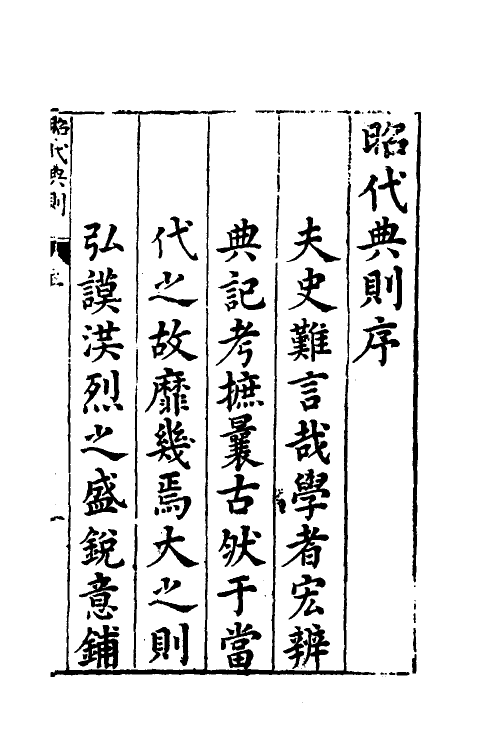 昭代典則序
夫史難言哉學者宏辨
典記考摭曩古然于當
代之故靡幾焉大之則
弘謨渶烈之盛銳意鋪
昭代典則